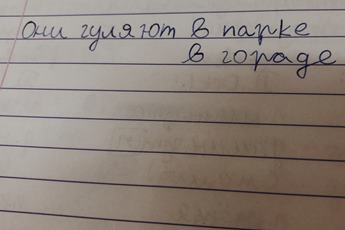 Они гуляют в парке
в гораде